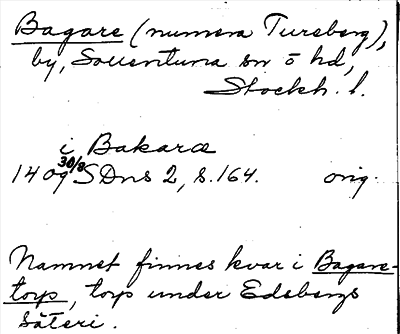 Bagare (numera Tureberg),
by, Sollentuna sn o hd,
Stockh. l.
i Bakaræ
1409 30/8 SDns 2, s. 164. orig.
Namnet finnes kvar i Bagare-
torp, torp under Edsbergs
säteri.